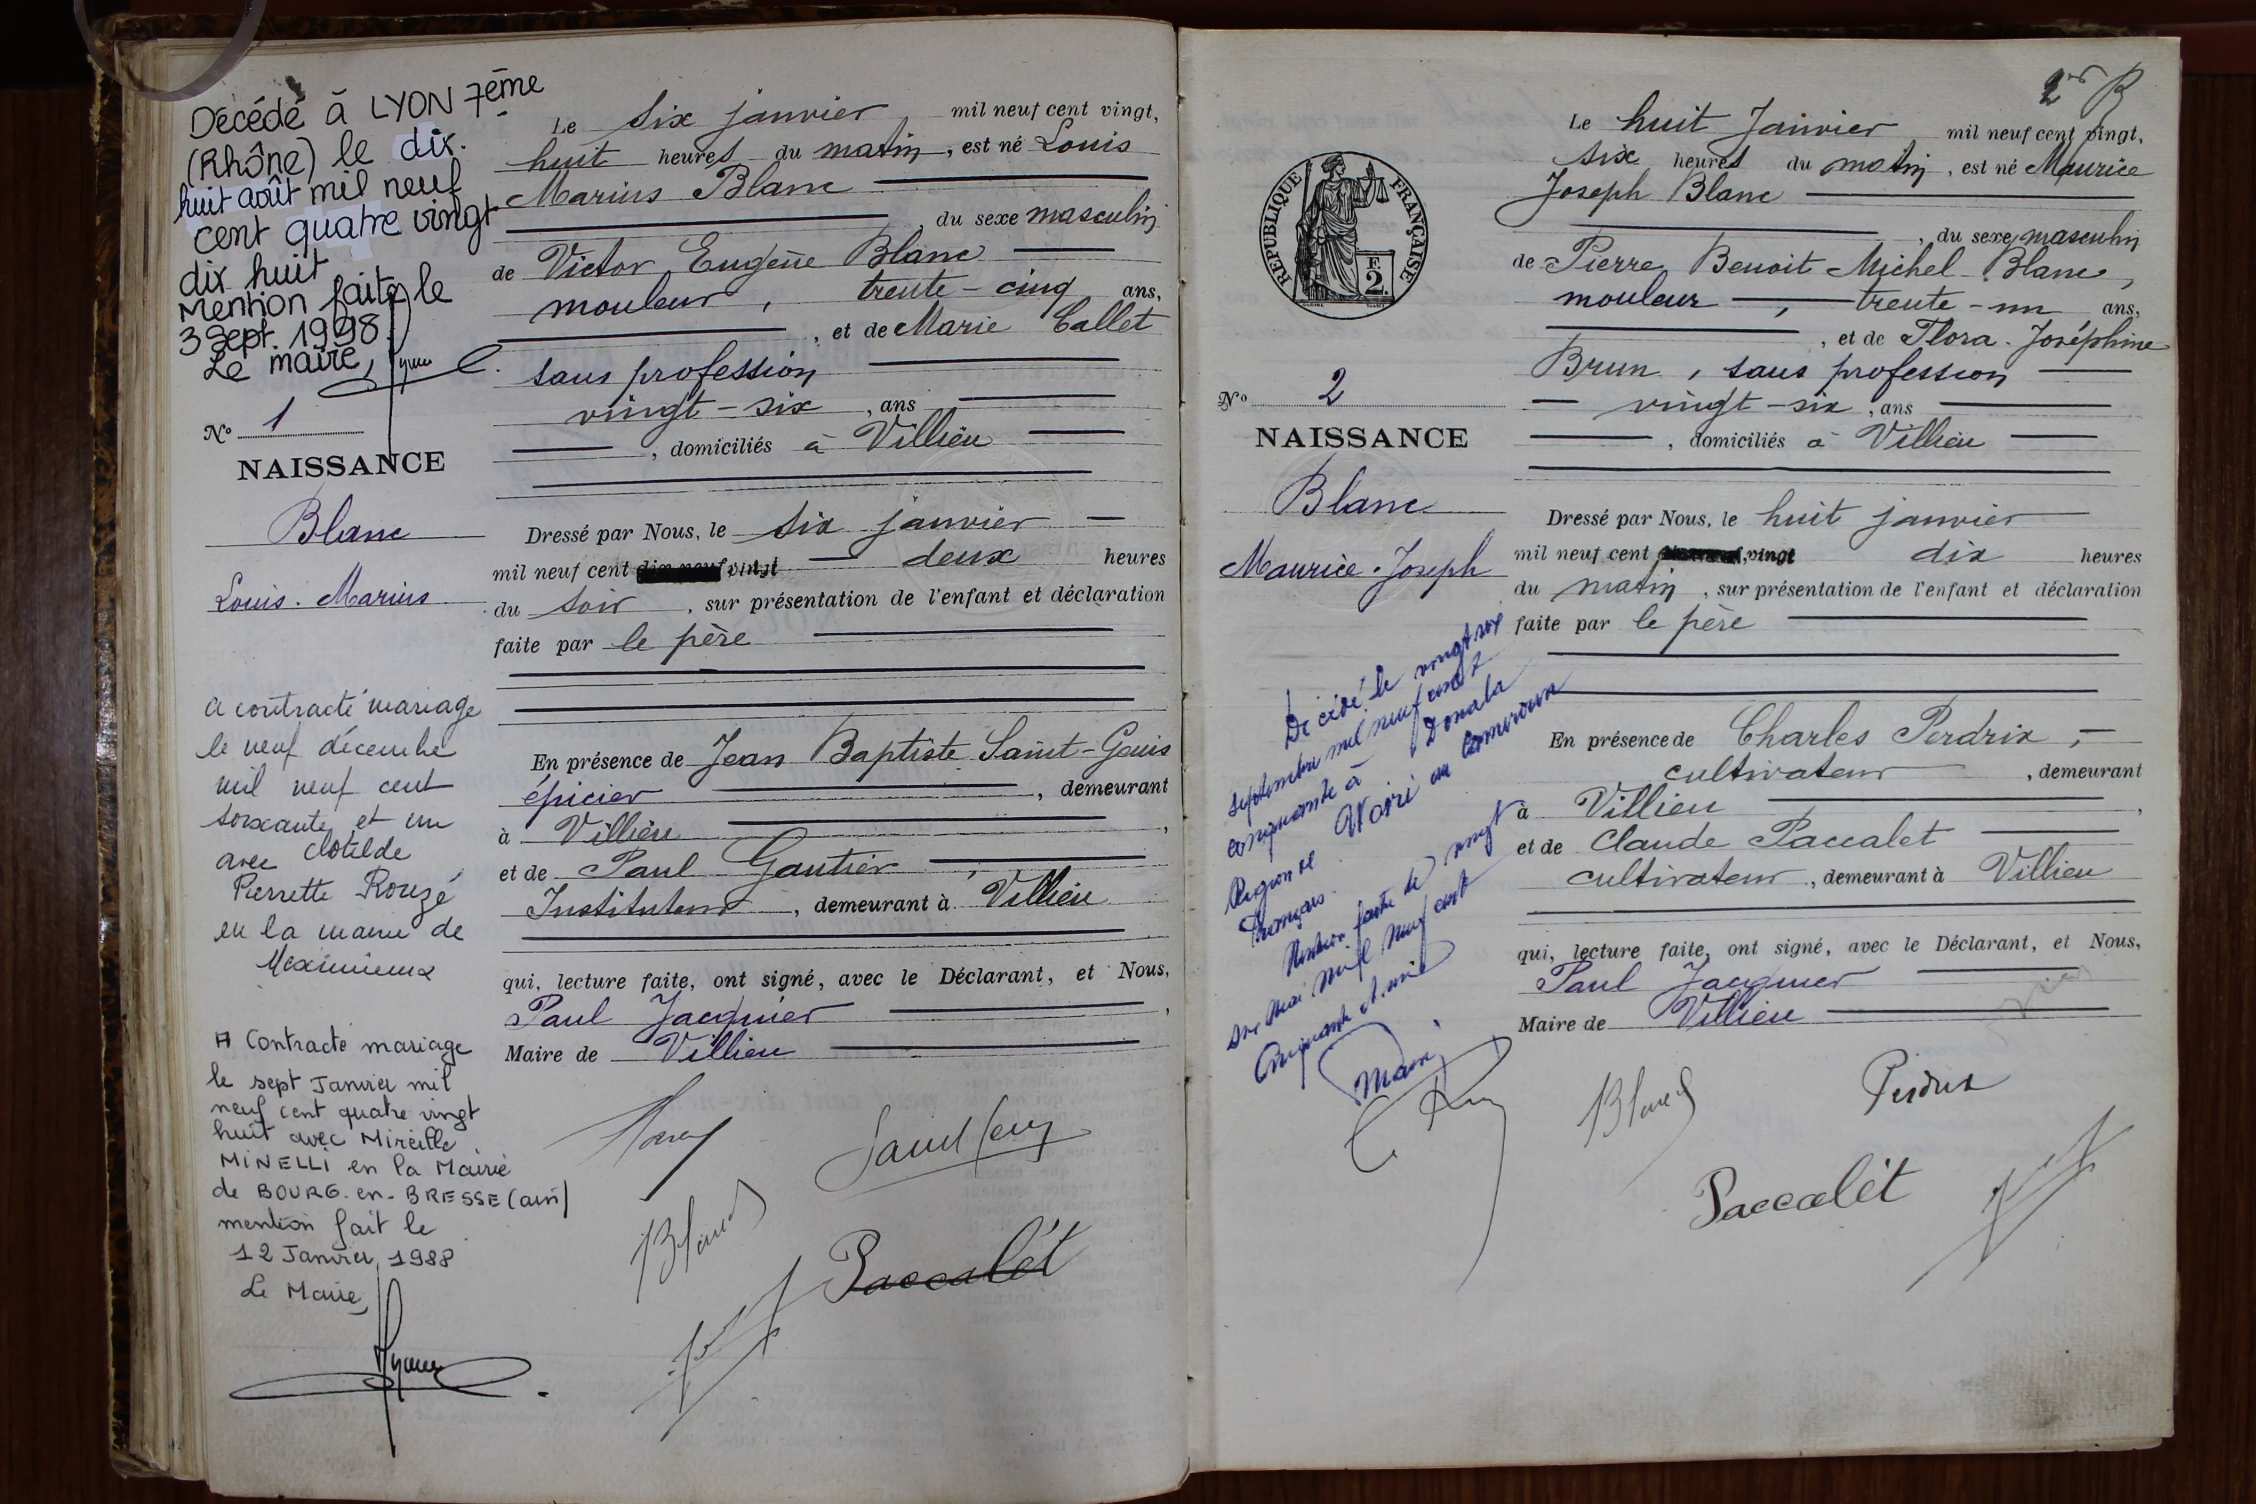 Décédé à LYON 7ème
(Rhône) le dix.
huit août mil neuf
cent quatre vingt
dix huit
Mention faite le
3 Sept. 1998
Le maire,
No 1
NAISSANCE
Blanc
Louis. Marius
a contracté mariage
le neuf décembre
mil neuf cent
soixante et un
avec Clotilde
Pierrette Rouzé
en la mairie de
Meximieux
A Contracté mariage
le sept Janvier mil
neuf cent quatre vingt
huit avec Mireille
MINELLI en la Mairie
de BOURG-en-BRESSE (ain)
mention fait le
12 Janvier 1988
Le Maire,
Le six janvier mil neuf cent vingt,
huit heures du matin, est né Louis
Marius Blanc
, du sexe masculin
de Victor Eugène Blanc
mouleur, trente-cinq ans,
, et de Marie Callet
sans profession
vingt-six, ans
, domiciliés à Villieu
Dressé par Nous, le six janvier
mil neuf cent vingt deux heures
du soir, sur présentation de l'enfant et déclaration
faite par le père
En présence de Jean Baptiste Saint-Genis
épicier, demeurant
à Villieu,
et de Paul Gautier,
Instituteur, demeurant à Villieu
qui, lecture faite, ont signé, avec le Déclarant, et Nous,
Paul Jacquier,
Maire de Villieu
Blanc
Paccalet
2
RÉPUBLIQUE FRANÇAISE
F.
2.
No 2
NAISSANCE
Blanc
Maurice. Joseph
Décédé le vingt six
septembre mil neuf cent
cinquante à Douala
Région de Wouri au Cameroun
Français.
Mention faite le vingt
mai mil neuf cent
cinquante et un
Maire
Le huit Janvier mil neuf cent vingt,
six heures du matin, est né Maurice
Joseph Blanc
, du sexe masculin
de Pierre Benoit Michel Blanc,
mouleur, trente-un ans,
, et de Flora. Joséphine
Brun, sans profession
vingt-six, ans
, domiciliés à Villieu
Dressé par Nous, le huit janvier
mil neuf cent vingt dix heures
du matin, sur présentation de l'enfant et déclaration
faite par le père
En présence de Charles Perdrix,
cultivateur, demeurant
à Villieu,
et de Claude Paccalet
cultivateur, demeurant à Villieu
qui, lecture faite, ont signé, avec le Déclarant, et Nous,
Paul Jacquier
Maire de Villieu
Blanc
Perdrix
Paccalet